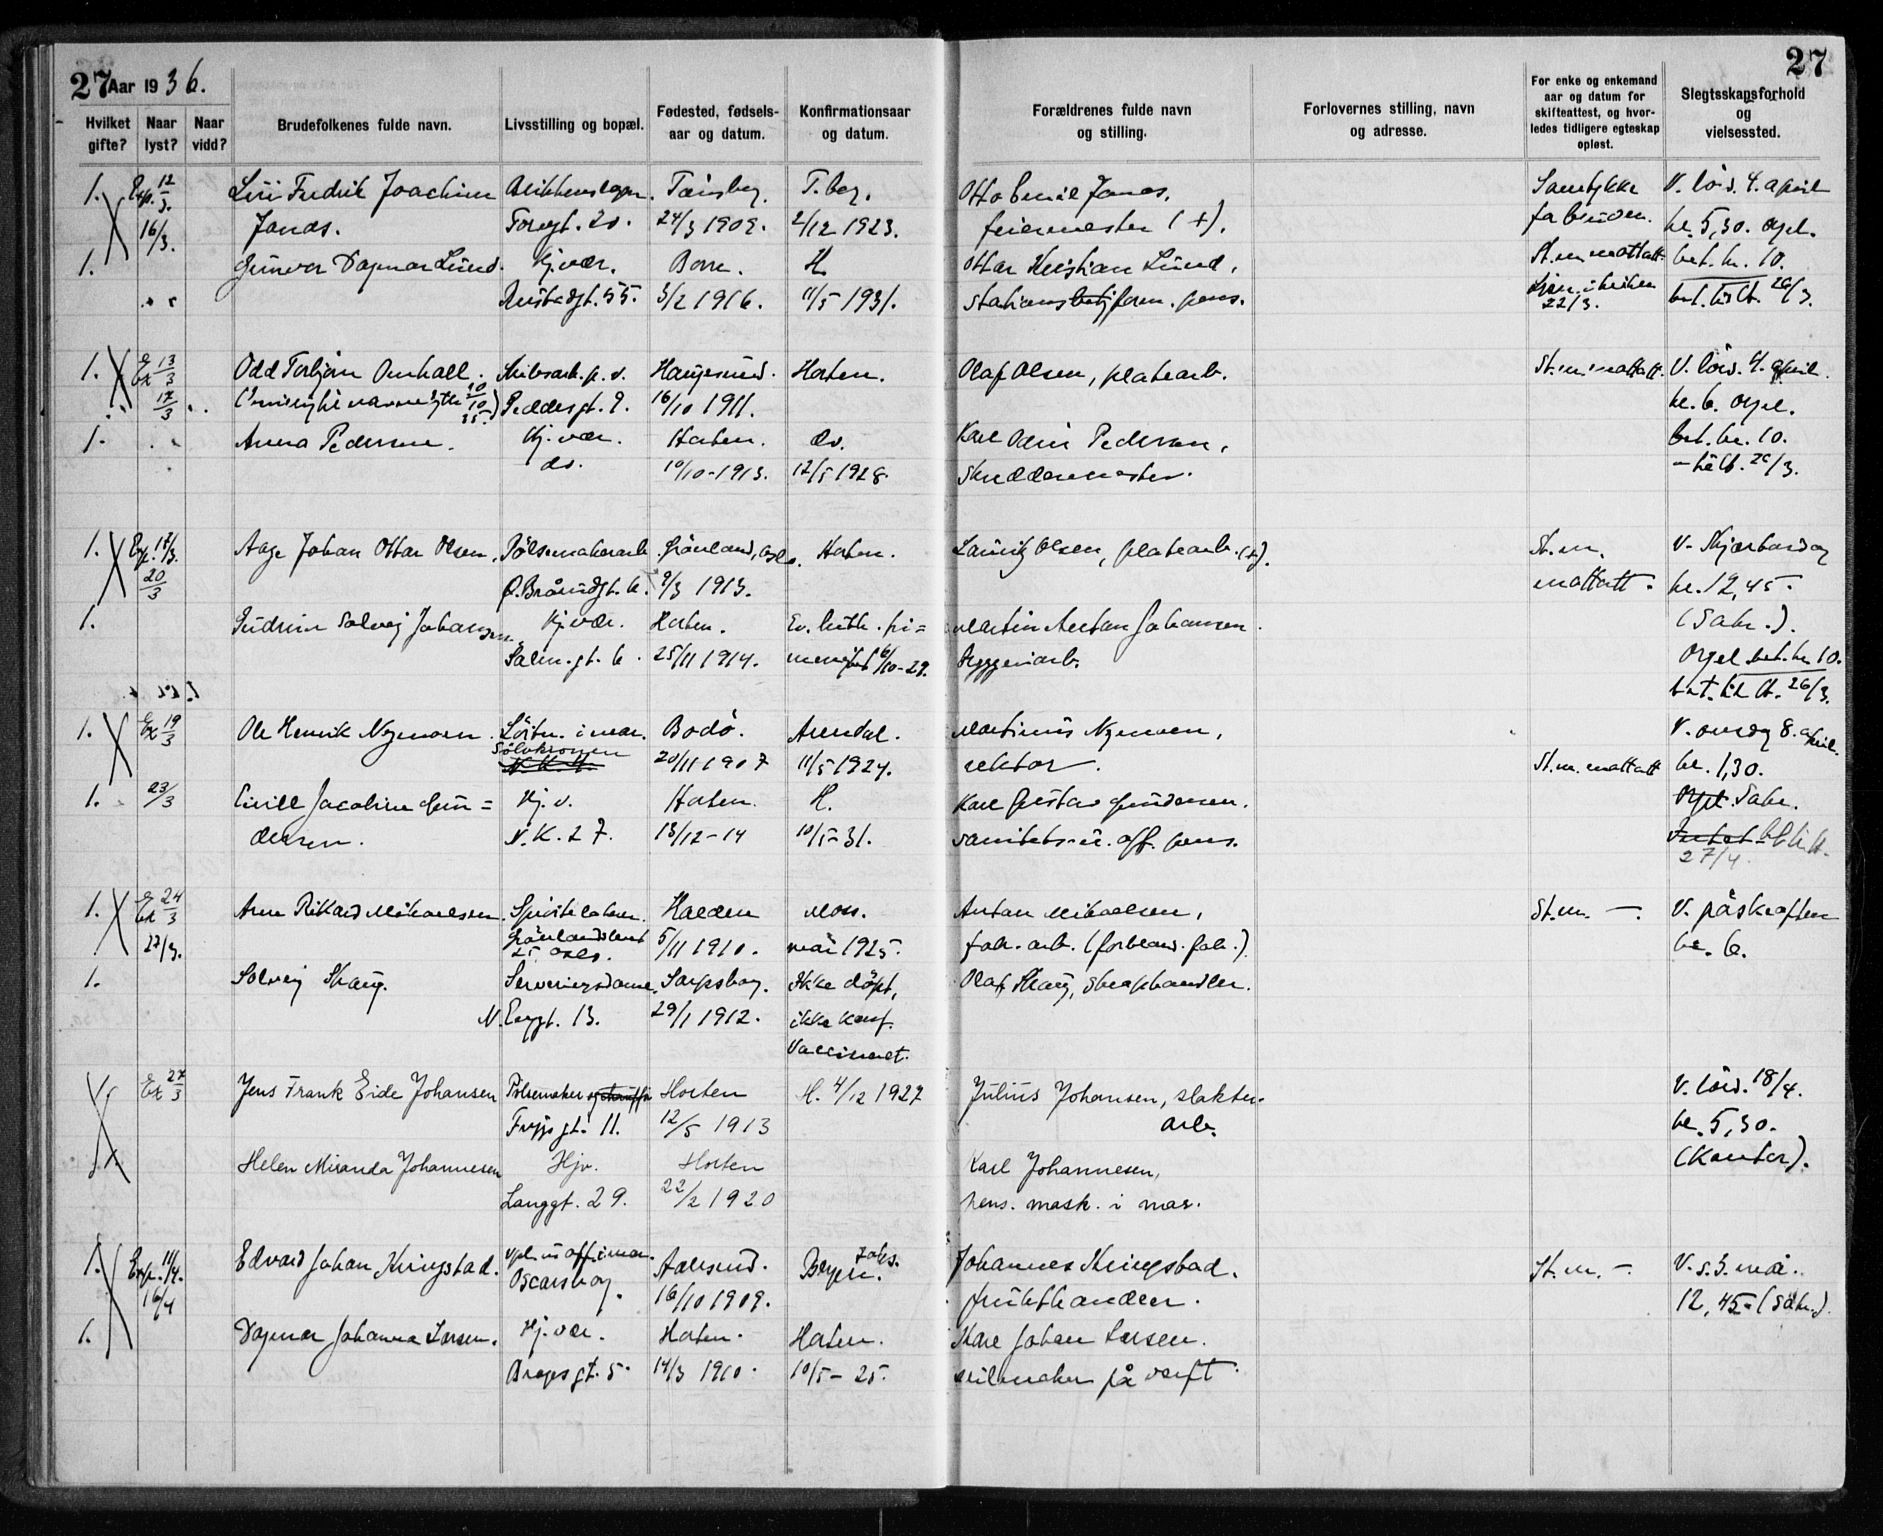 27 Aar 1936. 27
Hvilket gifte? Naar lyst? Naar vidd? Brudefolkenes fulde navn. Livsstilling og bopæl. Fødested, fødsels-aar og datum. Konfirmationsaar og datum. Forældrenes fulde navn og stilling. Forlovernes stilling, navn og adresse. For enke og enkemand aar og datum for skifteattest, og hvorledes tidligere egteskap opløst. Slegtsskapsforhold og vielsessted.
1. Exp. 12/3. Fredrik Joachim Tønsberg. T.berg. Otto Emil Jonas, Samtykke V. lörd. 4. april
16/3. Jonas. Torvgt. 20. 24/3 1909. 2/12 1923. feiermester (+). kl. 5,30. Orgel.
1. Gunvor Dagmar Lund. Hj.vær. Borre. H. Ottar Kristian Lund, St.m. mottatt. bet. kr. 10.
Rustadgt. 55. 3/2 1916. 11/5 1931. stations form. pens. 22/3. 26/3.
1. 13/3 Odd Torbjørn Haugesund. Horten. Olaf Olsen, platearb. St.m. mottatt. V. lörd. 4. april.
17/3 Peddersgt. 9. 16/10 1911. kl. 6. Orgel.
1. Anna Pedersen. Hj.vær. Horten. do. Karl Odin Pedersen, bet. kr. 10.
do. 10/10-1913. 12/5 1928. Skreddermester. 26/3.
1. Exp. 17/3. Aage Johan Ottar Olsen. Pølsemakerarb. Grönland, Oslo. Horten. Lauritz Olsen, platearb. (+). St.m. V. Skjærtorsdag
20/3 9/3 1913. mottatt. kl. 12,45.
1. Gudrun Solveig Johansen. Hj.vær. Horten. Ev. luth. fri= Martin Anton Johansen. (Sakr.).
gt. 6. 25/11 1914. menighet 6/10-29. bryggeriarb. Orgel bet. kr. 10.
26/3.
1. 19/3 Ole Henrik Nymoen. Löitn. i mar. Bodö. Arendal. Martinus Nymoen, V. onsdag 8. april.
20/11 1907 11/5 1924. rektor. St.m. mottatt kl. 1,30.
1. 23/3 Jacobine Gun= Hj.v. Horten. H. Karl Gustav Gundersen. Orgel. Sakr.
dersen. N.K. 27. 13/12-14 10/5-31. sanitets-u. off. pens.
27/4.
1. 24/3 Arne Rikard Mikaelsen. Halden Moss. Anton Mikaelsen, St.m. —. V. påskeaften
27/3. 25 Oslo. 5/11 1910. mai 1925. fab. arb. kl. 6.
1. Solveig Skaug. Serveringsdame. Sarpsborg. Ikke döpt, Olaf Skaug, skraphandler.
N. Enggt. 13. 29/1 1912. ikke konf.
Vaccineret.
27/3 Jens Frank Eide Johansen Pölsemaker Horten H. 4/12 1927 Julius Johansen, slakter- V. lörd. 18/4.
gt. 11. 12/5 1913 arb. kl. 5,30.
Helen Miranda Johannesen Hjv. Horten Karl Johannesen, (Kontor).
Langgt. 29. 22/2 1920 pens. mask. i mar.
1. Exp. 11/4. Edvard Johan Kringstad. Aalesund. Bergen. Johannes Kringstad. St.m. —. V. s. 3. mai.
16/4 Oscarsborg. 16/10 1909. frukthandler. 12,45 (sakr.).
1. Dagmar Johanna Larsen. Hj.vær. Horten. Horten. Karl Johan Larsen.
Bragesgt. 5. 14/3 1910. 10/5-25. seilmaker på verft.